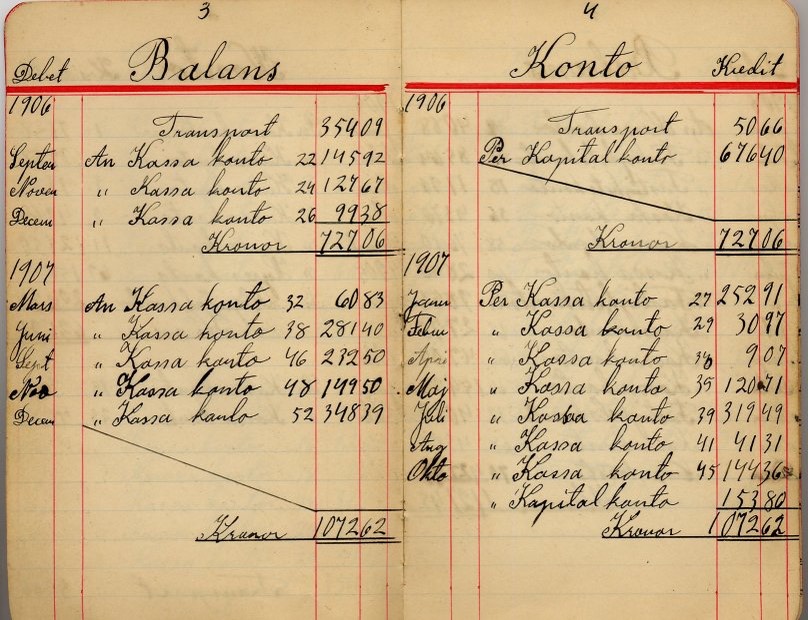 3
Debet Balans
1906
Transport 354 09
Septem An Kassa konto 22 145 92
Novem " Kassa konto 24 127 67
Decem " Kassa konto 26 99 38
Kronor 727 06
1907
Mars An Kassa konto 32 60 83
Juni " Kassa konto 38 281 40
Sept " Kassa konto 46 232 50
Nov " Kassa konto 48 149 50
Decem " Kassa konto 52 348 39
Kronor 1072 62
4
Konto Kredit
1906
Transport 50 66
Per Kapital konto 676 40
Kronor 727 06
1907
Janu Per Kassa konto 27 252 91
Febru " Kassa konto 29 30 97
Apri " Kassa konto 9 07
Maj " Kassa konto 35 120 71
Juli " Kassa konto 39 319 49
Aug " Kassa konto 41 41 31
Okto " Kassa konto 45 144 36
" Kapital konto 153 80
Kronor 1072 62